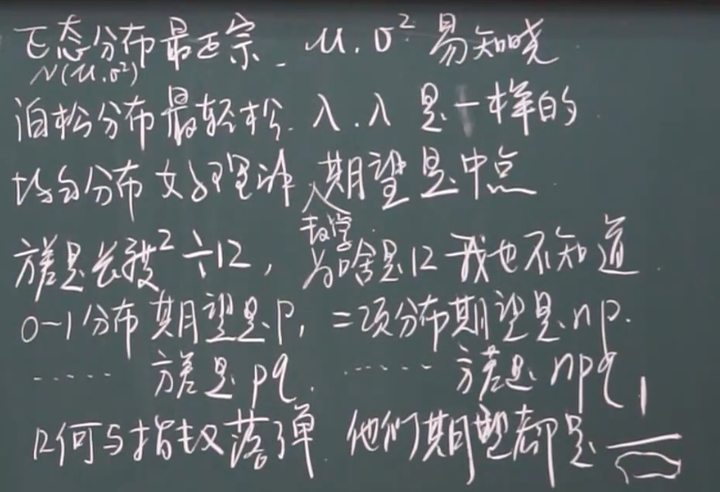 正态分布最正宗. μ.σ² 易知晓
N(μ.σ²)
泊松分布最轻松. λ.λ 是一样的
均匀分布女理 期望是中点
数学
方差是长度²÷12, 为啥是12 我也不知道
0-1分布期望是p, 二项分布期望是np.
…… 方差是pq. …… 方差是npq
几何与指数落弹 他们期望都是 1